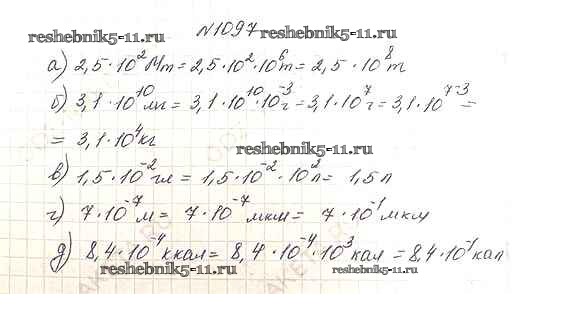 №1097
reshebnik5-11.ru reshebnik5-11.ru
а) 2,5·10² Мт = 2,5·10²·10⁶т = 2,5·10⁸т
б) 3,1·10¹⁰мг = 3,1·10¹⁰·10⁻³г = 3,1·10⁷г = 3,1·10⁷⁻³ =
= 3,1·10⁴кг
reshebnik5-11.ru
в) 1,5·10⁻²гл = 1,5·10⁻²·10²л = 1,5л
г) 7·10⁻⁷м = 7·10⁻⁷мкм = 7·10⁻¹мкм
д) 8,4·10⁻⁴ккал = 8,4·10⁻⁴·10³кал = 8,4·10⁻¹кал
reshebnik5-11.ru reshebnik5-11.ru